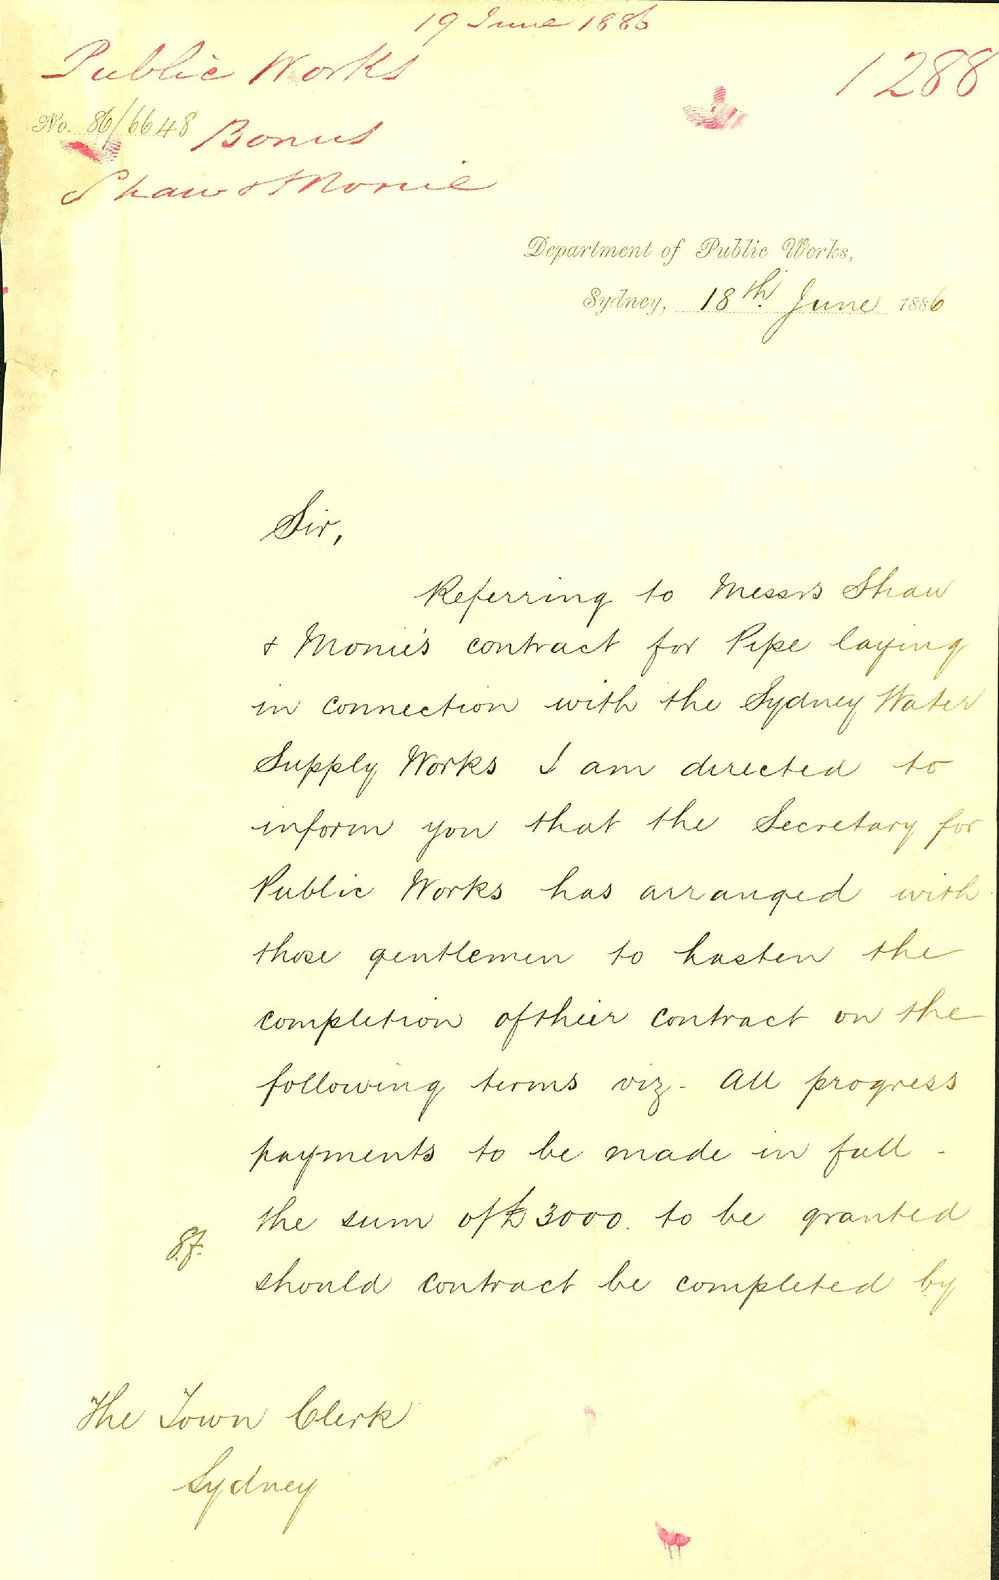 19 June 1886
Public Works
1288
No. 86/6648 Bonus
Shaw & Monie
Department of Public Works,
Sydney, 18th June 1886
Sir,
Referring to Messrs Shaw
& Monie's contract for Pipe laying
in connection with the Sydney Water
Supply Works I am directed to
inform you that the Secretary for
Public Works has arranged with
those gentlemen to hasten the
completion of their contract on the
following terms viz - All progress
payments to be made in full -
the sum of £3000. to be granted
should contract be completed by
The Town Clerk
Sydney